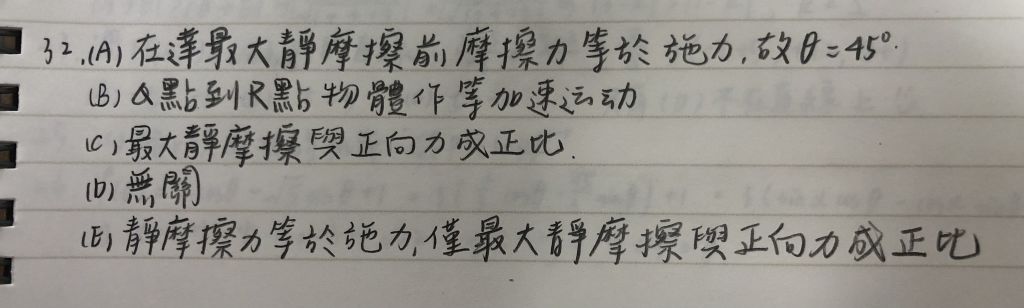 32.(A) 在達最大靜摩擦前摩擦力等於施力,故θ=45°.
(B) Q點到R點物體作等加速运动
(C) 最大靜摩擦與正向力成正比.
(D) 無關
(E) 靜摩擦力等於施力,僅最大靜摩擦與正向力成正比